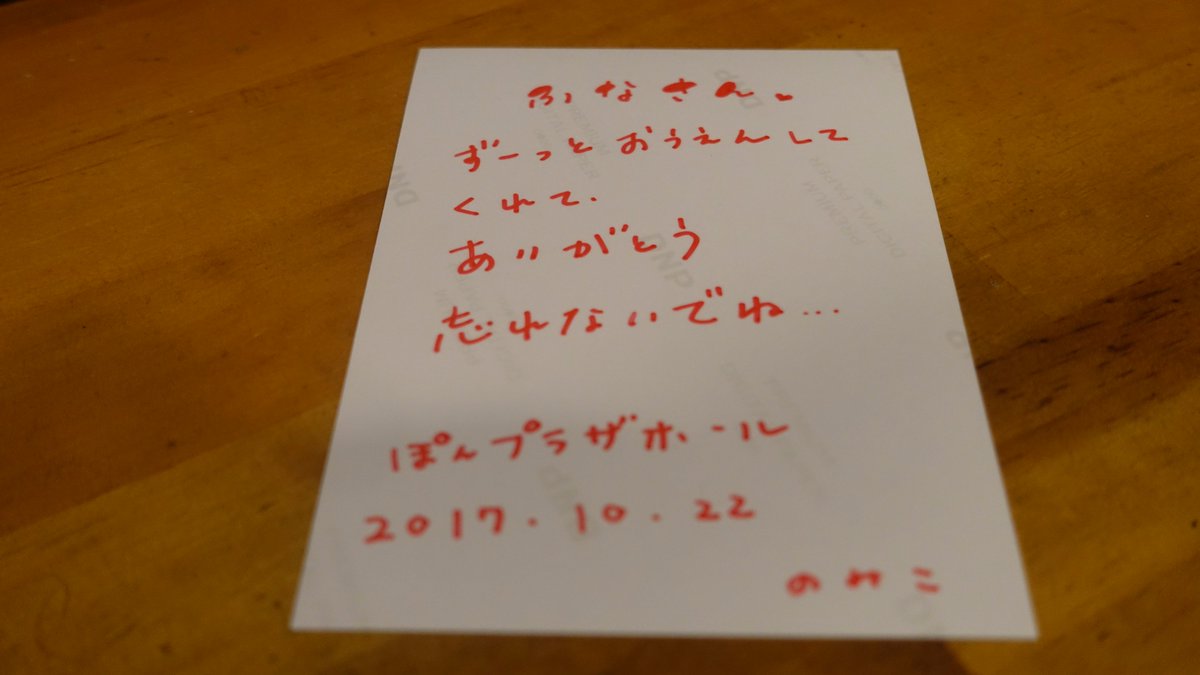 ふなさん。
ずーっとおうえんして
くれて.
ありがとう
忘れないでね...
ぽんプラザホール
2017.10.22
のみこ
DNP
PREMIUM
DIGITAL PAPER